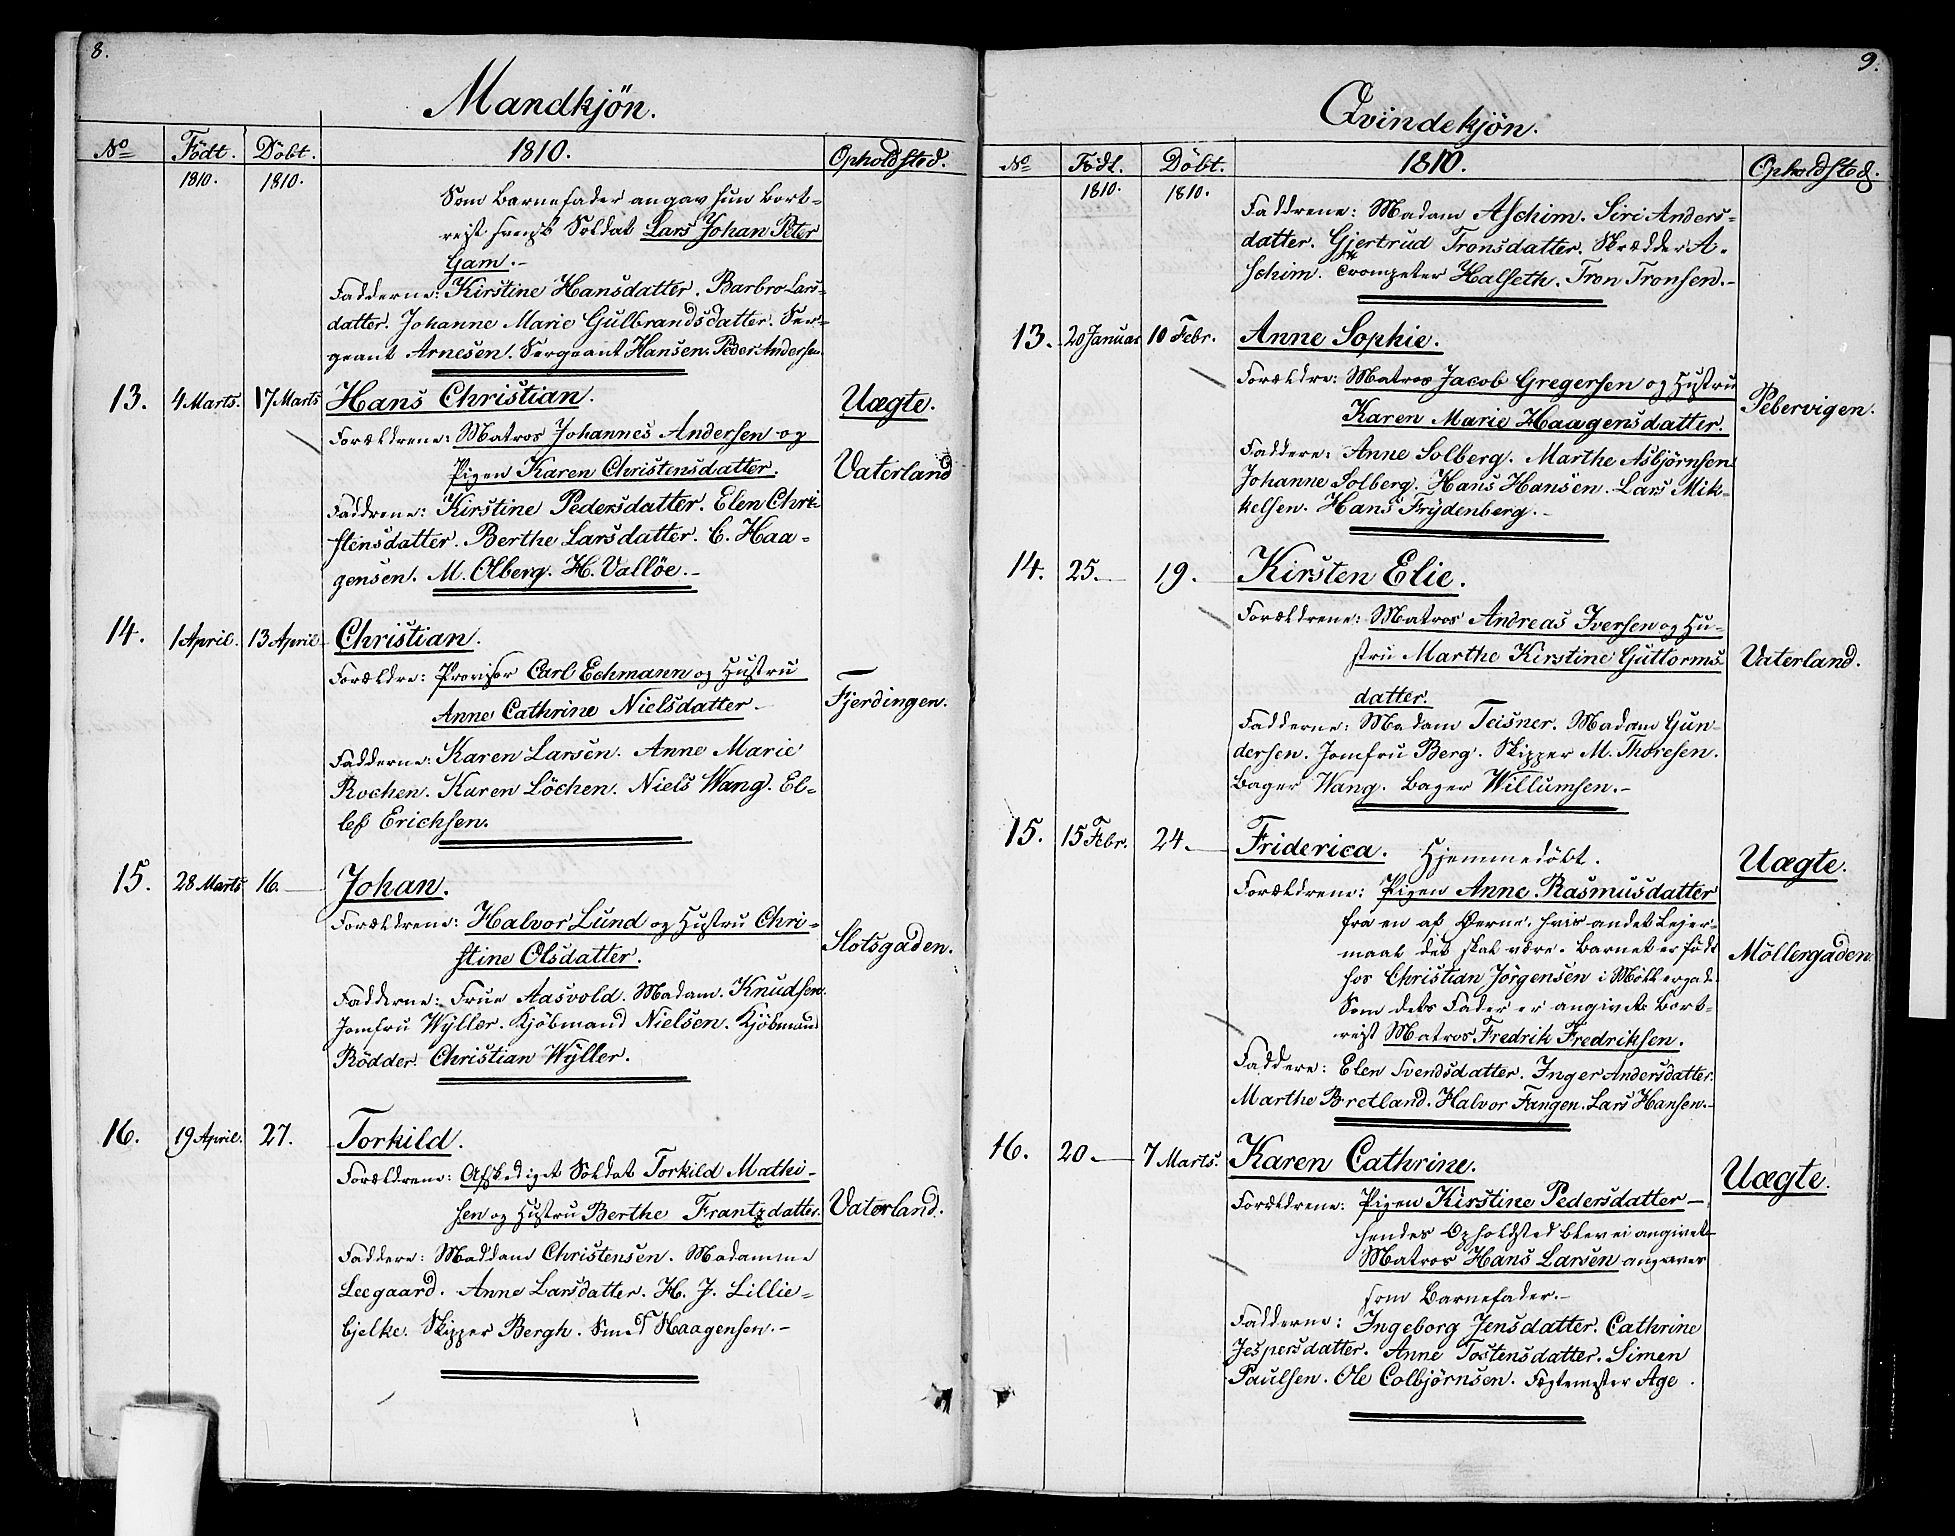 8.
Mandkjön.
No Födt. Döbt. 1810. Opholdsted.
1810. 1810.
Som Barnefader angav hun bort-
reist svensk Soldat Lars Johan Peter
Gam.-
Fadderne: Kirstine Hansdatter. Barbro Lars-
datter. Johanne Marie Gulbrandsdatter. Ser-
geant Arnesen. Sergeant Hansen. Peder Andersen.
13. 4 Marts. 17 Marts Hans Christian. Uægte.
Forældrene: Matros Johannes Andersen og
Pigen Karen Christensdatter. Vaterland
Faddrene: Kirstine Pedersdatter. Elen Chri-
stensdatter. Berthe Larsdatter. C. Haa-
gensen. M. Olberg. H. Vallöe.-
14. 1 April. 13 April Christian.
Forældre: Provisor Carl Echmann og Hustru Fjerdingen.
Anne Cathrine Nielsdatter.-
Fadderne: Karen Larsen. Anne Marie
Rochen. Karen Löchen. Niels Wang. El-
lef Erichsen.
15. 28 Marts 16.— Johan.
Forældrene: Halvor Lund og Hustru Chri- Slotsgaden.
stine Olsdatter.
Fadderne: Frue Aasvold. Madam. Knudsen.
Jomfru Wÿller. Kjöbmand Nielsen. Kjöbmand
Rödder. Christian Wÿller.
16. 19 April. 27. Torkild.
Forældrene: Afskediget Soldat Torkild Mathi-
sen og Hustru Berthe Frantzdatter. Vaterland.
Faddere: Maddam Christensen. Madamme
Leegaard. Anne Larsdatter. H. J. Lillie-
bjelke. Skipper Bergh. Smed Haagensen.-
9.
Qvindekjön.
No Födt. Döbt. 1810. Opholdsted.
1810. 1810.
Faddrene: Madam Aschim. Siri Anders-
datter. Gjertrud Tronsdatter. Skrædder A-
schim. Trompeter Halseth. Tron Tronsen.-
13. 20 Januar 10 Febr. Anne Sophie.
Forældre: Matros Jacob Gregersen og Hustru Pebervigen.
Karen Marie Haagensdatter.
Faddere: Anne Solberg. Marthe Asbjörnsen
Johanne Solberg. Hans Hansen. Lars Mik-
kelsen. Hans Frÿdenberg.-
14. 25.— 19.— Kirsten Elie.
Forældrene: Matros Andreas Iversen og Hu-
stru Marthe Kirstine Guttorms- Vaterland.
datter.
Fadderne: Madam Teisner. Madam Gun-
dersen. Jomfru Berg. Skipper M. Thoresen.
Bager Wang. Bager Willumsen.-
15. 15 Febr. 24.— Friderica. Hjemmedöbt. Uægte.
Forældrene: Pigen Anne Rasmusdatter
fra en af Öerne, hvis andet Leier-
maal det skal være. Barnet er födt Möllergaden
hos Christian Jörgensen i Möllergad.
Som dets Fader er angivet bort-
reist Matros Fredrik Fredriksen.
Faddere: Elen Svendsdatter. Inger Andersdatter.
Marthe Bretland. Halvor Fangen. Lars Hansen.-
16. 20— 7 Marts. Karen Cathrine. Uægte.
Forældrene: Pigen Kirstine Pedersdatter—
hendes Opholdsted blev ei angivet
Matros Hans Larsen angaves
som Barnefader.-
Fadderne: Ingeborg Jensdatter. Cathrine
Jespersdatter. Anne Tostensdatter. Simen
Paulsen. Ole Colbjørnsen. Fegtemester Age.